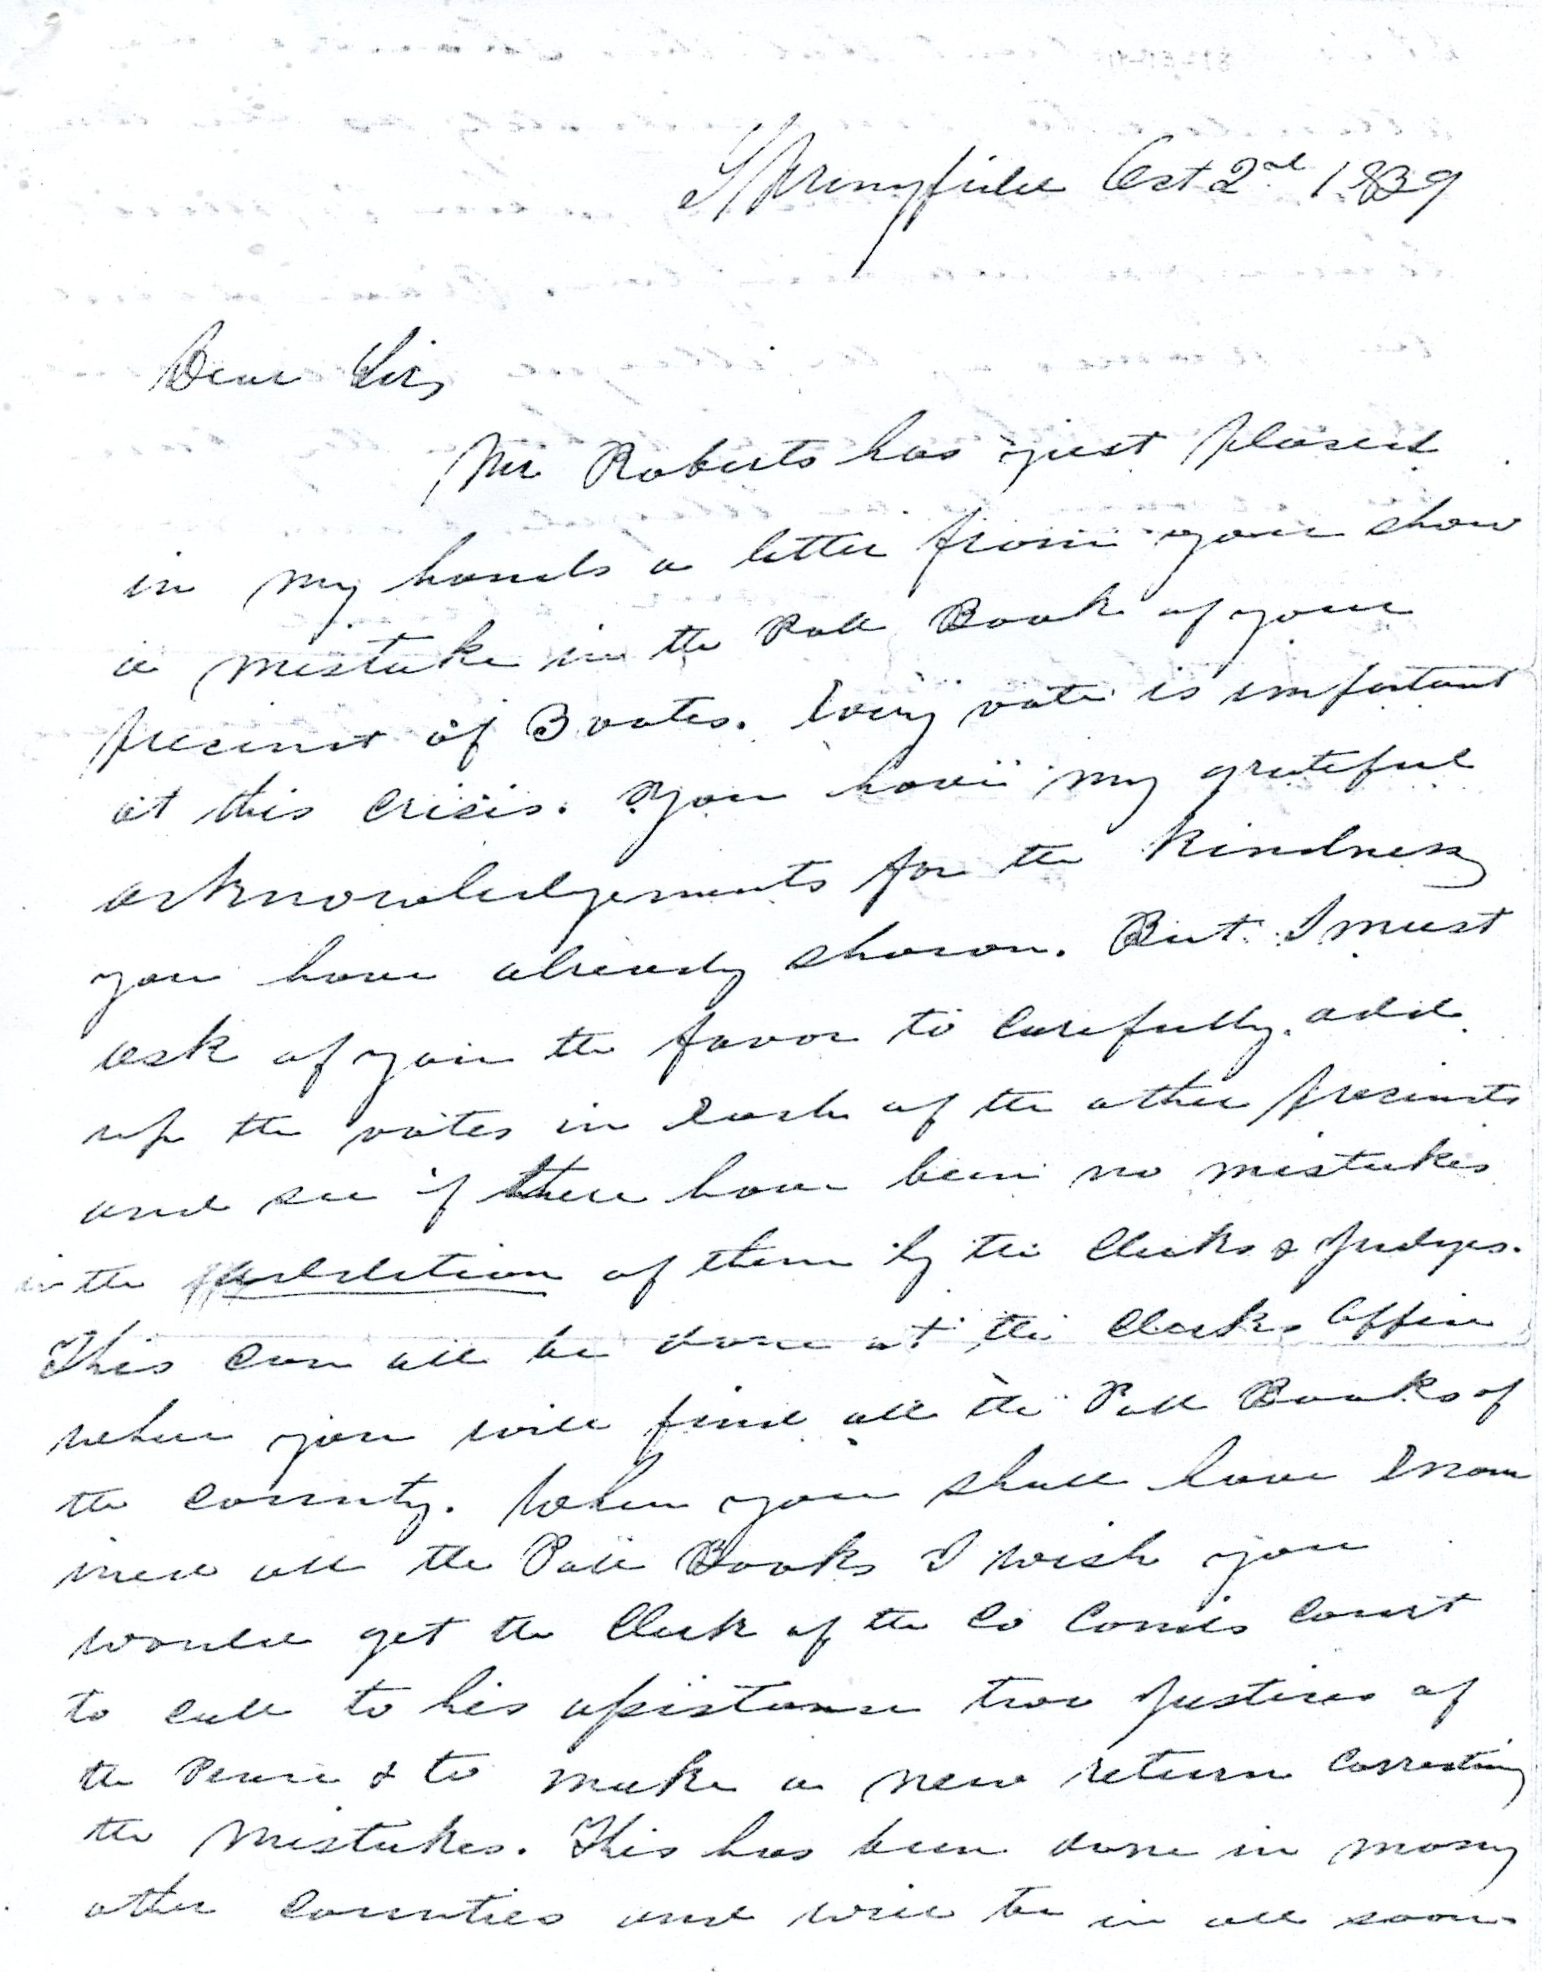 Springfield Oct 2nd 1839
Dear Sir,
Mr Roberts has just placed
in my hands a letter from you show
a mistake in the Poll Book of your
precinct of 3 votes. Every vote is important
at this crisis. You have my grateful
acknowledgements for the kindness
you have already shown. But I must
ask of you the favor to carefully add
up the votes in each of the other precincts
and see if there have been no mistakes
in the addition of them by the Clerks & Judges.
This can all be done at the Clerks Office
where you will find all the Poll Books of
the county. When you shall have exam
ined all the Poll Books I wish you
would get the Clerk of the Co Comrs Court
to call to his assistance two Justices of
the Peace & to make a new return correcting
the mistakes. This has been done in many
other counties and will be in all soon